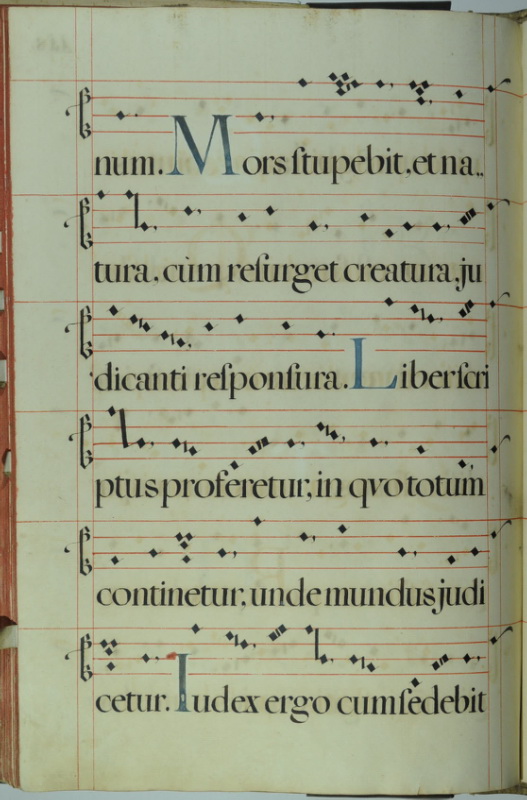 num. Mors ſtupebit, et na..
tura, cùm reſurget creatura, ju
dicanti reſponſura. Liber ſcri
ptus proferetur, in qvo totum
continetur, unde mundus judi
cetur. Iudex ergo cum ſedebit